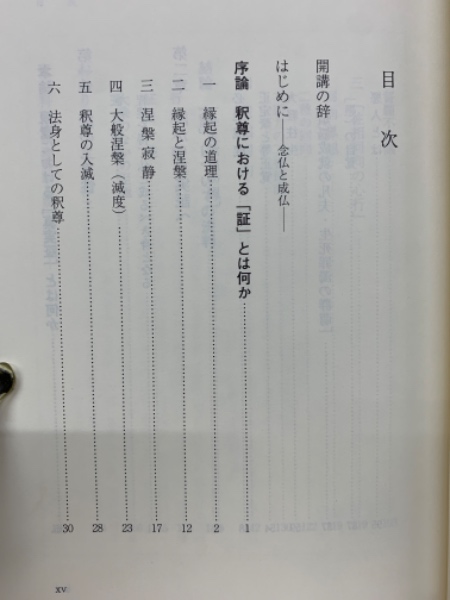 目次
開講の辞
はじめに――念仏と成仏――
序論 釈尊における「証」とは何か……1
一 縁起の道理……2
二 縁起と涅槃……12
三 涅槃寂静……17
四 大般涅槃（滅度）……23
五 釈尊の入滅……28
六 法身としての釈尊……30
xv